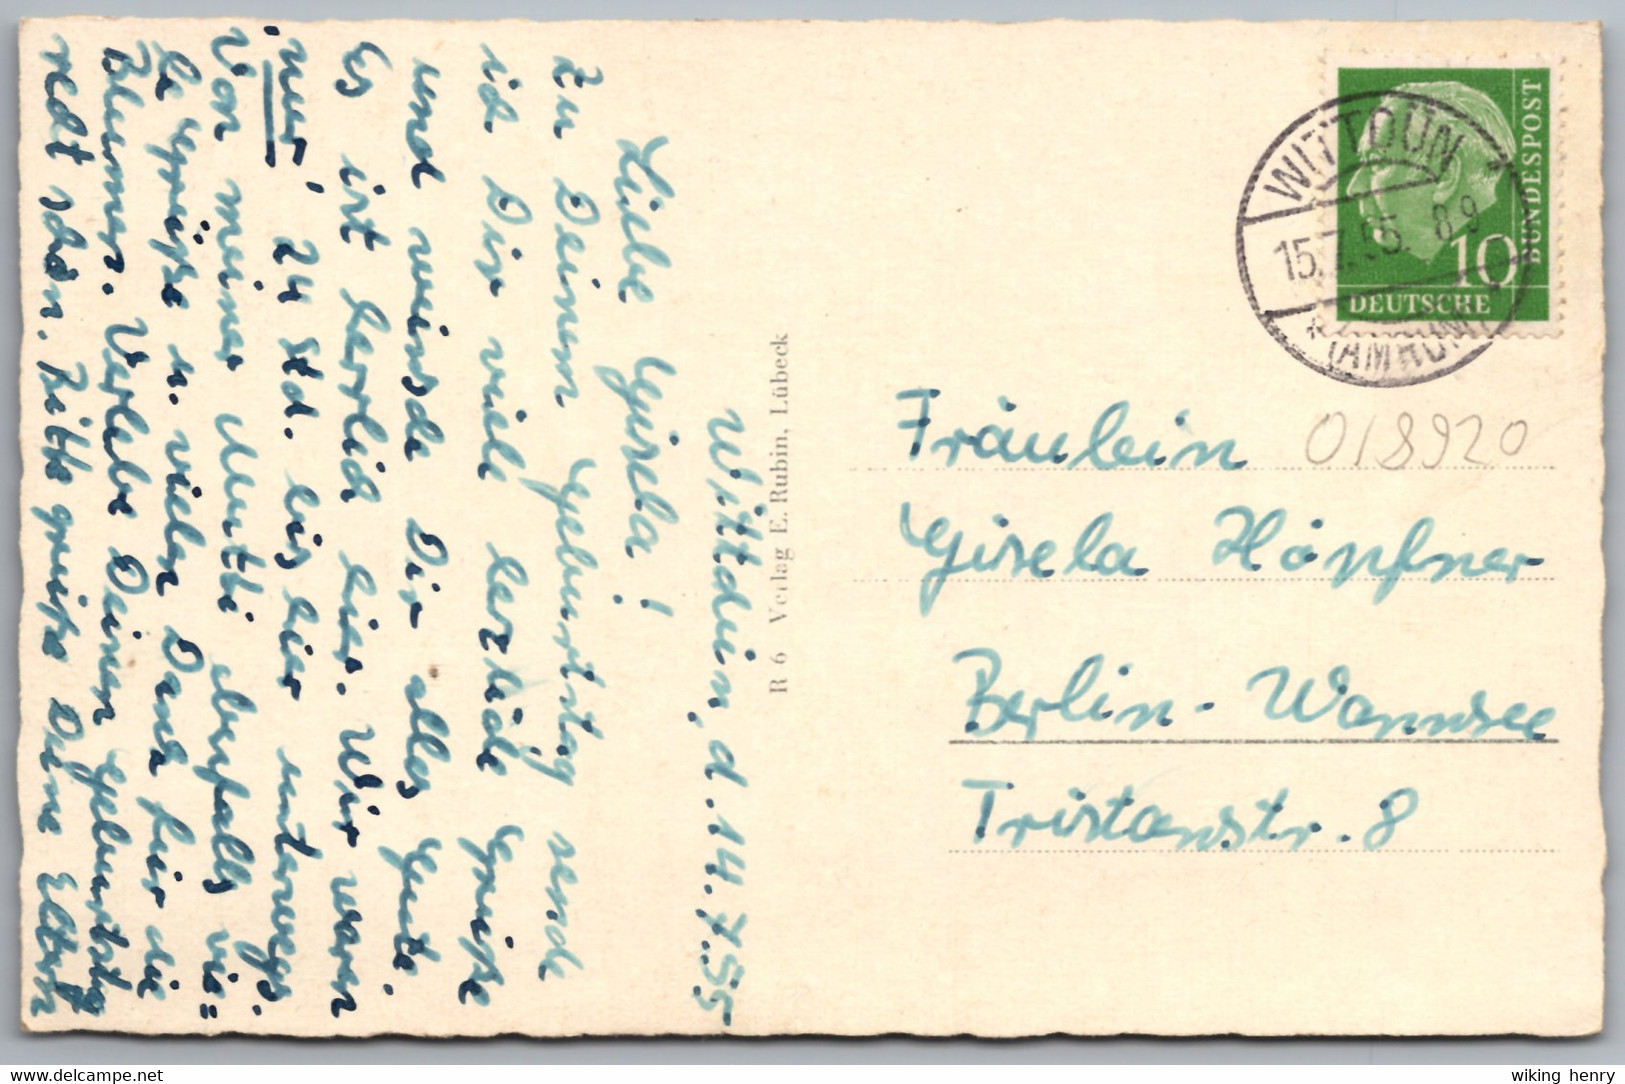 Wittdün, d. 14.7.55
Liebe Gisela!
Zu Deinem Geburtstag sende
ich Dir viele herzliche Grüsse
und wünsche Dir alles Gute.
Es ist herrlich hier. Wir waren
"nur" 24 Std. bis hier unterwegs.
Von meiner Mutti ebenfalls vie=
le Grüße u. vielen Dank für die
Blumen. Verlebe Deinen Geburtstag
recht schön. Bitte grüsse Deine Eltern
R 6 Verlag E. Rubin, Lübeck
WITTDÜN
15.7.55. 8-9
(AMRUM)
DEUTSCHE
BUNDESPOST
10
018920
Fräulein
Gisela Höpfner
Berlin-Wannsee
Tristanstr. 8
www.delcampe.net
wiking henry